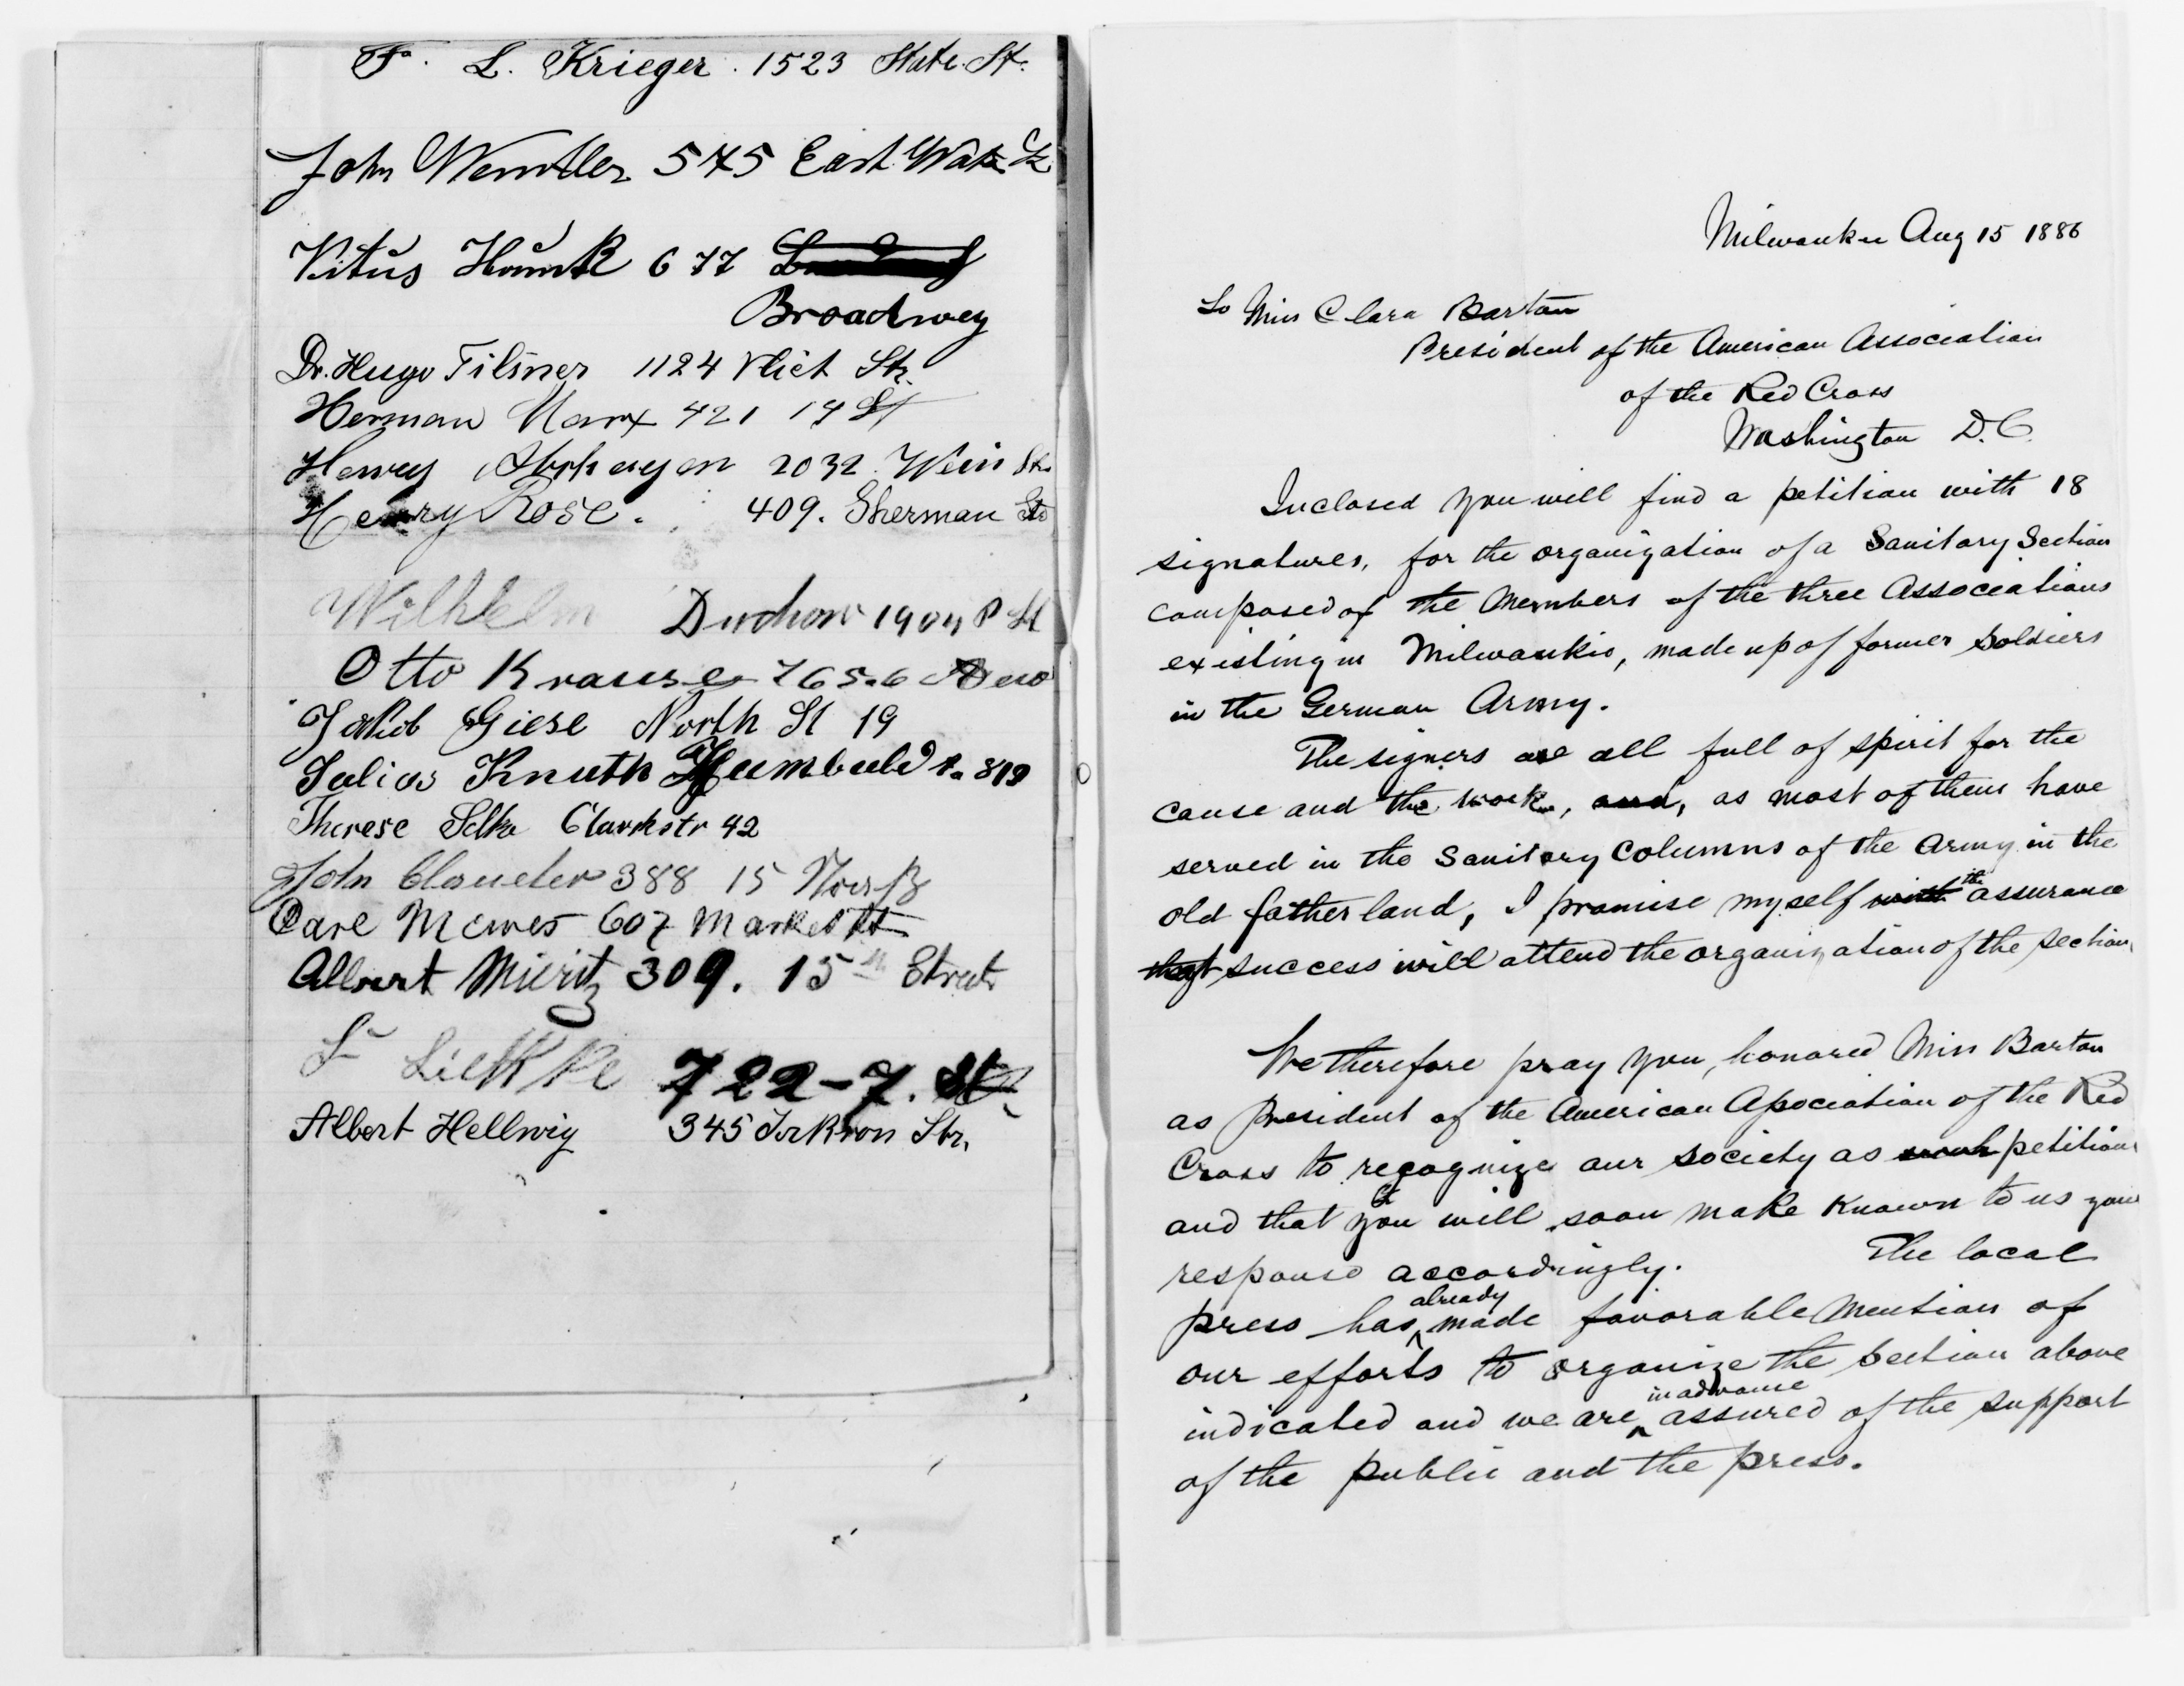 F. L. Krieger. 1523 State. St.
John Wendler 575 East Water St
Vitus Haunk 677
Broadwey
Dr. Hugo Filsner 1124 Vliet Str.
Herman Marx 421 14 St
Henry Abphagen 2032. Wein Str
Henry Rose. 409. Sherman Str
Wilhhelm Duchow 1904 P St
Otto Krause 765.6
Jakob Giese North St 19
Julius Knuth Humbuld 819
Therese Selke Clarkstr 42
John 388 15
Carl Mewes 607 Market St
Albert Mieritz 309. 15th Street
722-7. St
Albert Hellwig 345 Jakson Str.
Milwaukee Aug 15 1886
To Miss Clara Barton
President of the American Association
of the Red Cross
Washington D.C.
Inclosed you will find a petition with 18
signatures, for the organization of a Sanitary Section
composed of the Members of the three Associations
existing in Milwaukie, made up of former Soldiers
in the German Army.
The signers are all full of spirit for the
cause and the work, and, as most of them have
served in the Sanitary Columns of the Army in the
old fatherland, I promise myself with the assurance
that success will attend the organization of the section
We therefore pray you, honored Miss Barton
as President of the American Association of the Red
Cross to recognize our society as such petitions
and that you will soon make known to us your
response accordingly. The local
press has already made favorable mention of
our efforts to organize the section above
indicated and we are in advance assured of the support
of the public and the press.